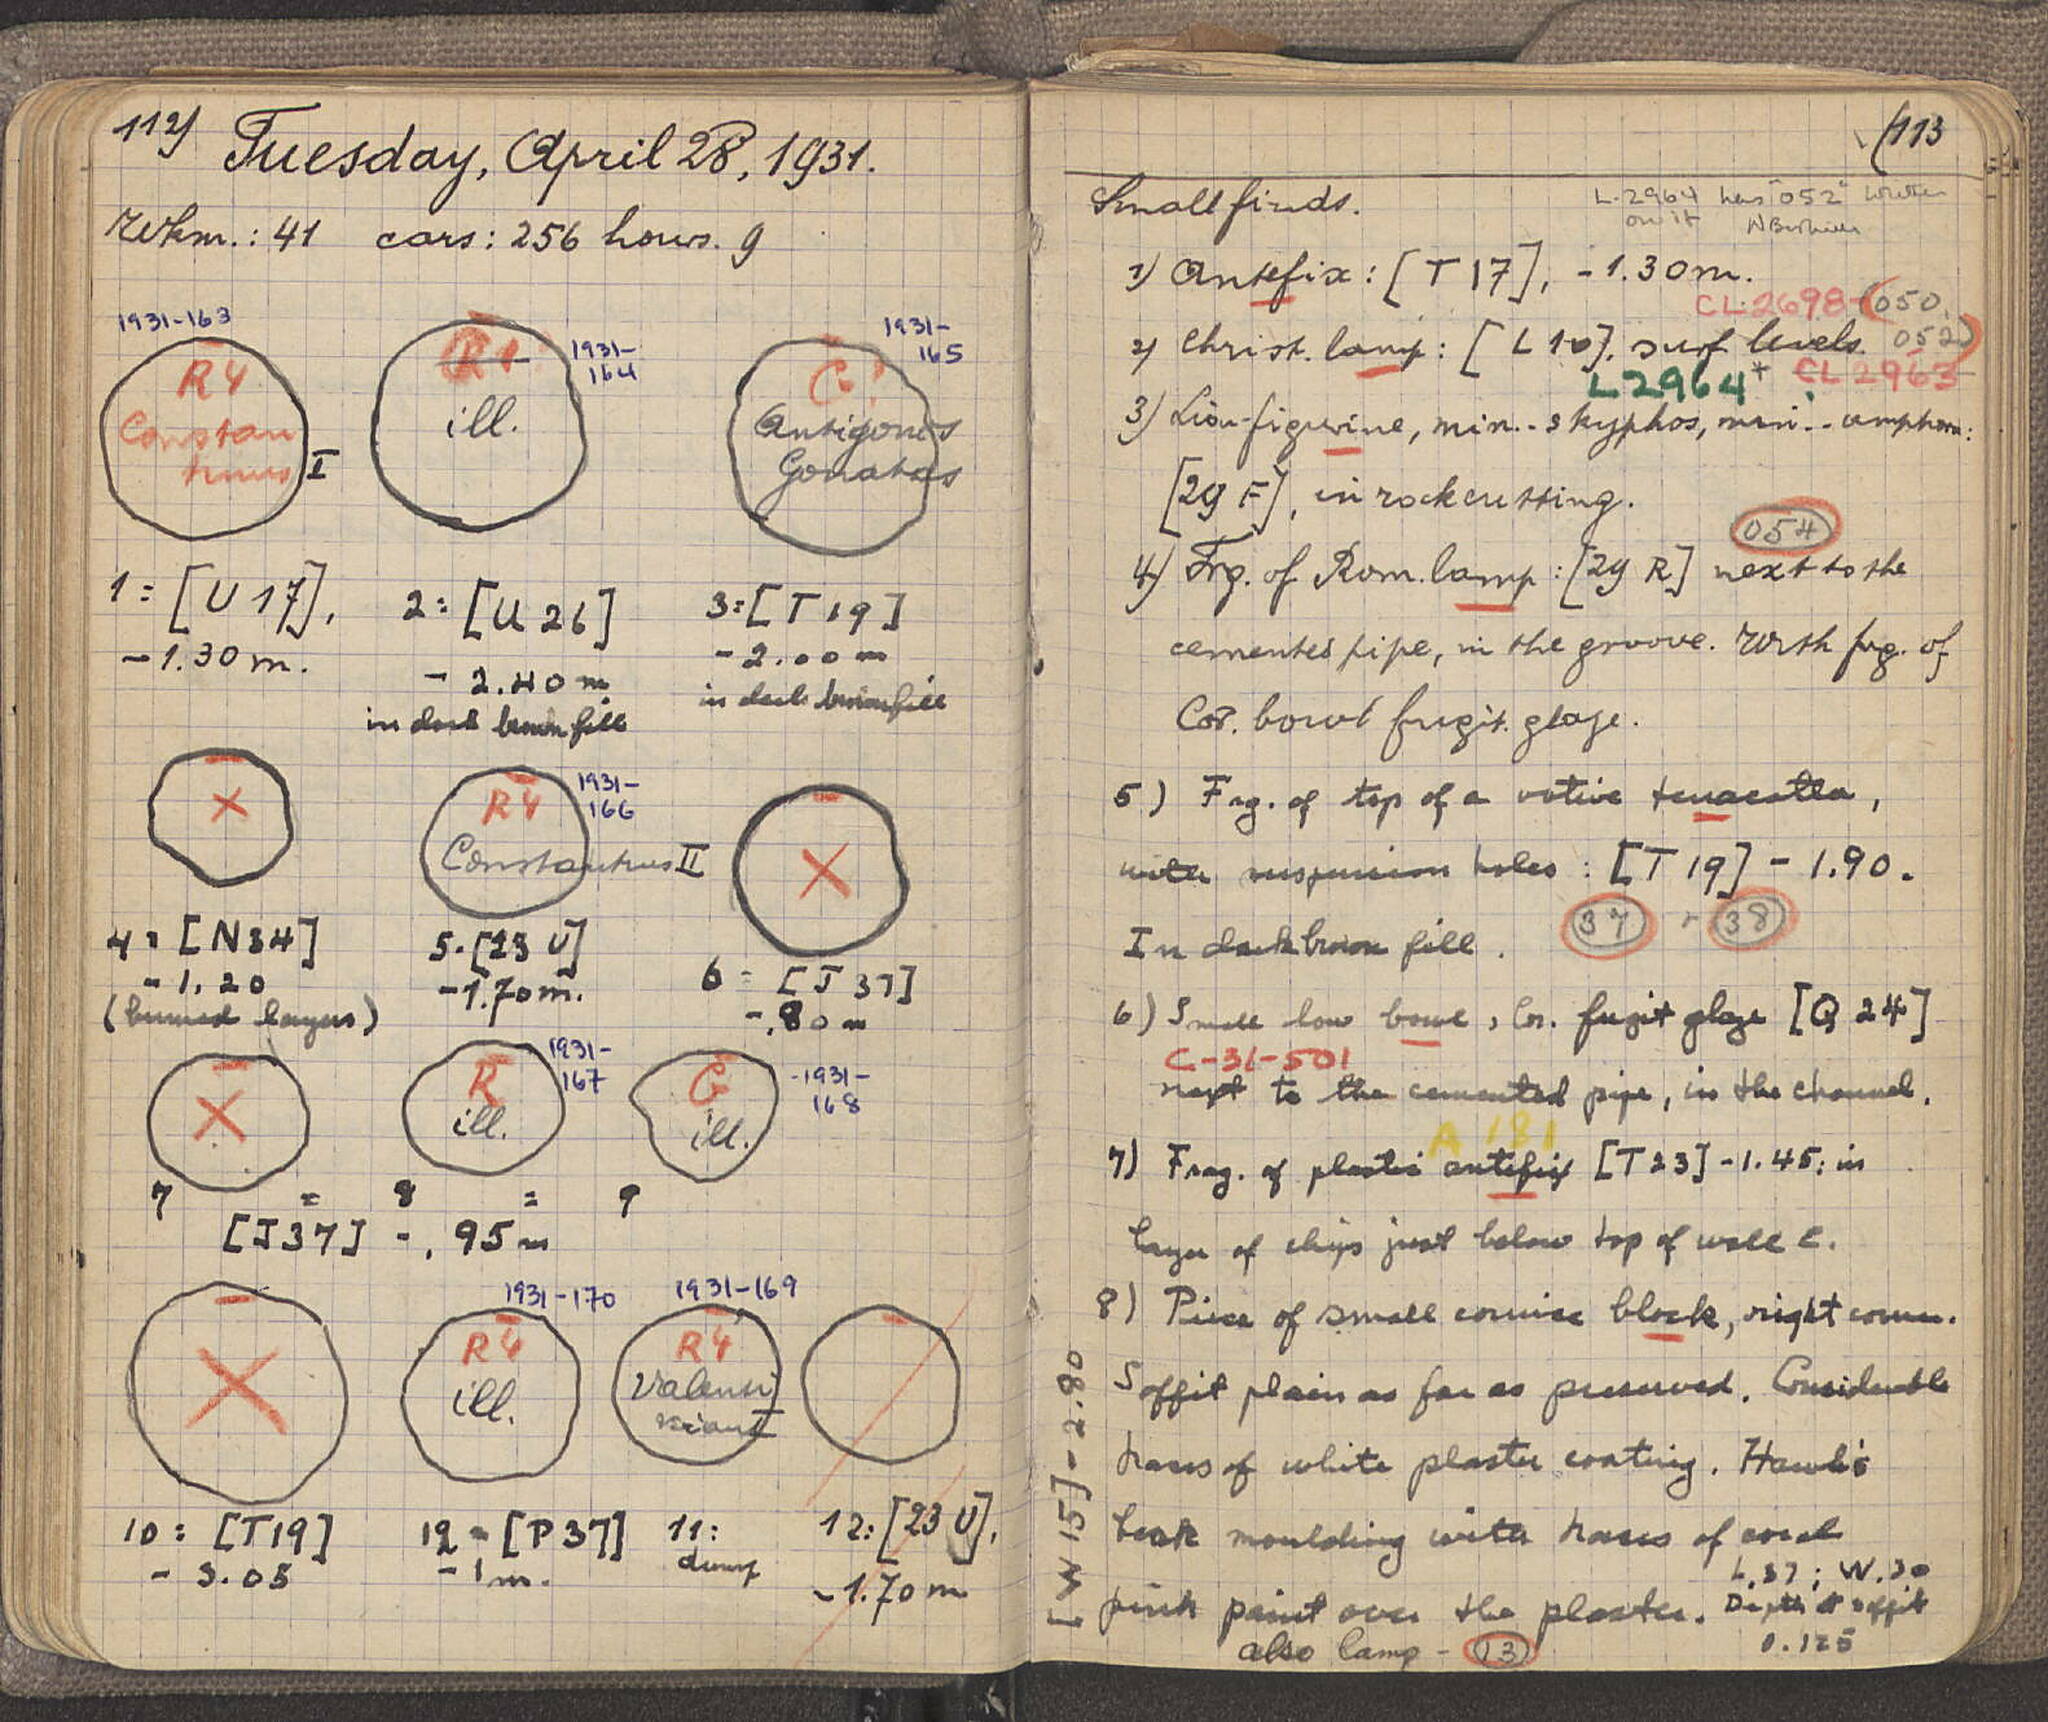 112)
Tuesday, April 28, 1931.
Wkm.: 41 cars: 256 hours. 9
1931-163
1931-
164
1931-
165
R4
Constan
tinus I
R4
ill.
G?
Antigonos
Gonatas
1 = [U 17],
-1.30 m.
2: [U 26]
- 2.40 m
in dark brown fill
3: [T 19]
- 2.00 m
in dark brown fill
X
R4
Constantius II
1931-
166
X
4 = [N34]
- 1.20
(burned layers)
5. [23 U]
-1.70 m.
6 = [J 37]
-.80 m
X
R
ill.
1931-
167
G
ill.
-1931-
168
7 = 8 = 9
[J37] -.95 m
1931-170
1931-169
X
R4
ill.
R4
Valenti
nian I
10 = [T19]
- 3.05
12 = [P 37]
- 1 m.
11:
dump
12: [23 U],
-1.70 m
(113
Small finds.
L.2964 has "052" written
on it
1) Antefix: [T 17], -1.30 m.
CL.2698-(050.
2) Christ. lamp: [L 10], surf levels. 052)
L2964* CL 2963
3) Lion-figurine, min.-skyphos, min.-amphora:
[29 F], in rockcutting.
054
4) Frg. of Rom. lamp: [29 R] next to the
cemented pipe, in the groove. With frg. of
Cor. bowl fugit. glaze.
5) Frg. of top of a votive terracotta,
with suspension holes: [T 19] - 1.90.
In dark brown fill. 37 + 38
6) Small low bowl, Cor. fugit glaze [Q 24]
C-31-501
next to the cemented pipe, in the channel.
A 181
7) Frag. of plastic antefix [T23] -1.45; in
layer of chips just below top of wall E.
8) Piece of small cornice block, right corner.
Soffit plain as far as preserved. Considerable
traces of white plaster coating. Hawk's
beak moulding with traces of coral
pink paint over the plaster.
L.37; W.30
Depth of soffit
0.125
[W 15] - 2.80
also lamp - 13